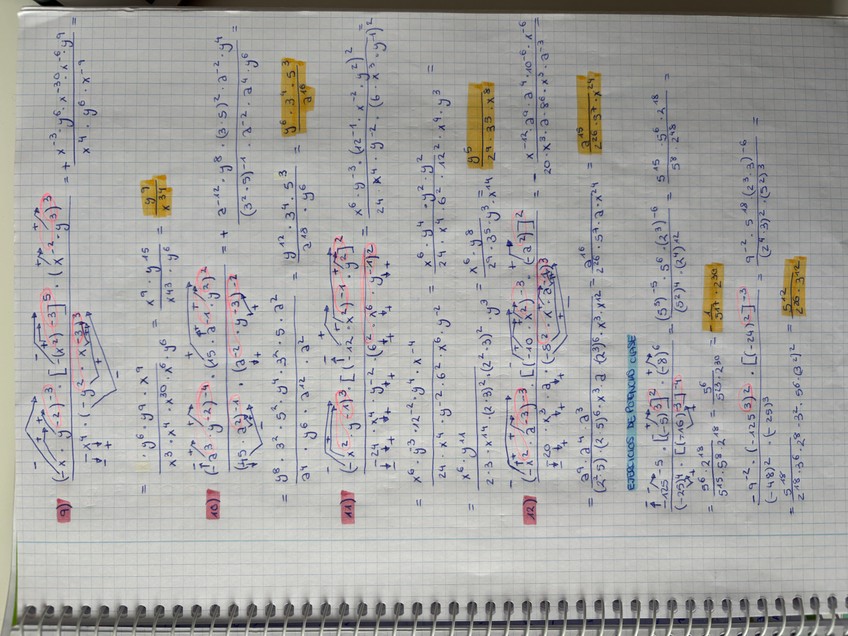 9) (-x · y⁻²)⁻³ · [-(x²)⁻³]⁵ · (x⁻² · y³)³ / -x⁴ · (-y² · x⁻³)³ = + x⁻³ · y⁶ · x⁻³⁰ · x⁻⁶ · y⁹ / x⁴ · y⁶ · x⁻⁹ =
= y⁶ · y⁹ · x⁹ / x³ · x⁴ · x³⁰ · x⁶ y⁶ = x⁹ · y¹⁵ / x⁴³ · y⁶ = y⁹ / x³⁴
10) (-a³ · y⁻²)⁻⁴ · (15 · a⁻¹ · y²)² / (45 · a²)⁻¹ · (a⁻² · y⁻³)⁻² = + a⁻¹² · y⁸ · (3·5)² · a⁻² · y⁴ / (3² · 5)⁻¹ · a⁻² · a⁴ · y⁶ =
= y⁸ · 3² · 5² · y⁴ · 3² · 5 · a² / a⁴ · y⁶ · a¹² · a² = y¹² · 3⁴ · 5³ / a¹⁸ · y⁶ = y⁶ · 3⁴ · 5³ / a¹⁶
11) (-x² · y⁻¹)³ · [(-12 · x²)⁻¹ · y]² / -24 · x⁴ · y⁻² · (6² · x⁶ · y⁻¹)² = x⁶ · y⁻³ · (12⁻¹ · x⁻² · y)² / 24 · x⁴ · y⁻² · (6 · x³ · y⁻¹)² =
= x⁶ · y³ · 12⁻² · y⁴ · x⁻⁴ / 24 · x⁴ · y⁻² · 6² · x⁶ · y⁻² = x⁶ · y⁴ · y² · y² / 24 · x⁴ · 6² · 12² · x⁴ · y³ =
x⁶ · y¹¹ / 2·3 · x¹⁴ · (2·3)² · (2²·3)² · y³ = x⁶ y⁸ / 2⁹ · 3⁵ · y³ · x¹⁴ = y⁵ / 2⁹ · 3⁵ · x⁸
12) (-x⁴ · a⁻³)⁻³ · [(-10 · x²)⁻³ · (-a²)]² / -20 · x³ · a · (-8² · x · a⁻¹)³ = - x⁻¹² · a⁹ · a⁴ · 10⁻⁶ · x⁻⁶ / 20 · x³ · a · 8⁶ · x³ · a⁻³ =
= a⁹ · a⁴ · a³ / (2²·5) · (2·5)⁶ · x³ · a · (2³)⁶ · x³ · x¹² = a¹⁶ / 2²⁶ · 5⁷ · a · x²⁴ = a¹⁵ / 2²⁶ · 5⁷ · x²⁴
EJERCICIOS DE POTENCIAS CLASE
-125⁻⁵ · [(-5)³]² · (-8)⁶ / (-25)⁴ · [(-16)³]⁻⁴ = (5³)⁻⁵ · 5⁶ · (2³)⁻⁶ / (5²)⁴ · (2⁴)¹² = 5¹⁵ · 5⁶ · 2¹⁸ / 5⁸ · 2⁴⁸ =
= 5⁶ · 2¹⁸ / 5¹⁵ · 5⁸ · 2¹⁸ = 5⁶ / 5²³ · 2³⁰ = - 1 / 5¹⁷ · 2³⁰
-9⁻² · (-125³)² · [(-24)²]⁻³ / (-48)² · (-25)³ = 9⁻² · 5¹⁸ · (2³·3)⁻⁶ / (2⁴·3)² · (5²)³ =
= 5¹⁸ / 2¹⁸ · 3⁶ · 2⁸ · 3² · 5⁶ · (3²)² = 5¹² / 2²⁶ · 3¹²